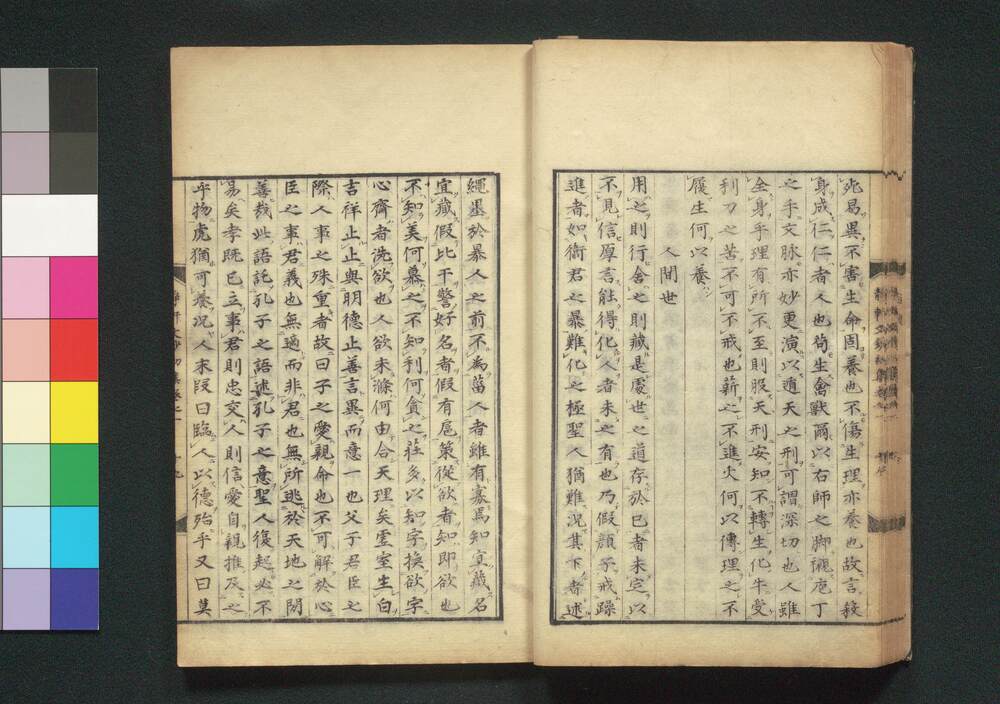 死易異不害生命固養也不傷生理亦養也故言殺
身成仁仁者人也苟生禽獸爾以右師之脚襯庖丁
之手文脉亦妙更演以遁天之刑可謂深切也人雖
全身乎理有所不至則服天刑安知不轉生化牛受
利刀之苦不可不戒也薪之不進火何以傳理之不
履生何以養
人間世
用之則行舍之則藏是處世之道存於已者未定以
不見信厚言能得化人者未之有也乃假顏子戒躁
進者如衛君之暴難化之極聖人猶難況其下者述
繩墨於暴人之前不為菑人者雖有寡焉知宜藏名
宜藏假比干警好名者假有扈策從欲者知即欲也
不知美何慕之不知利何貪之莊多以知字換欲字
心齊者洗欲也人欲未滌何由合天理矣虛室生白
吉祥止止與明德止善言異而意一也父子君臣之
際人事之殊重者故曰子之愛親命也不可解於心
臣之事君義也無適而非君也無所逃於天地之間
善哉此語託孔子之語述孔子之意聖人復起必不
易矣孝既已立事君則忠交人則信愛自親推及之
乎物虎猶可養況人末段曰臨人以德殆乎又曰莫